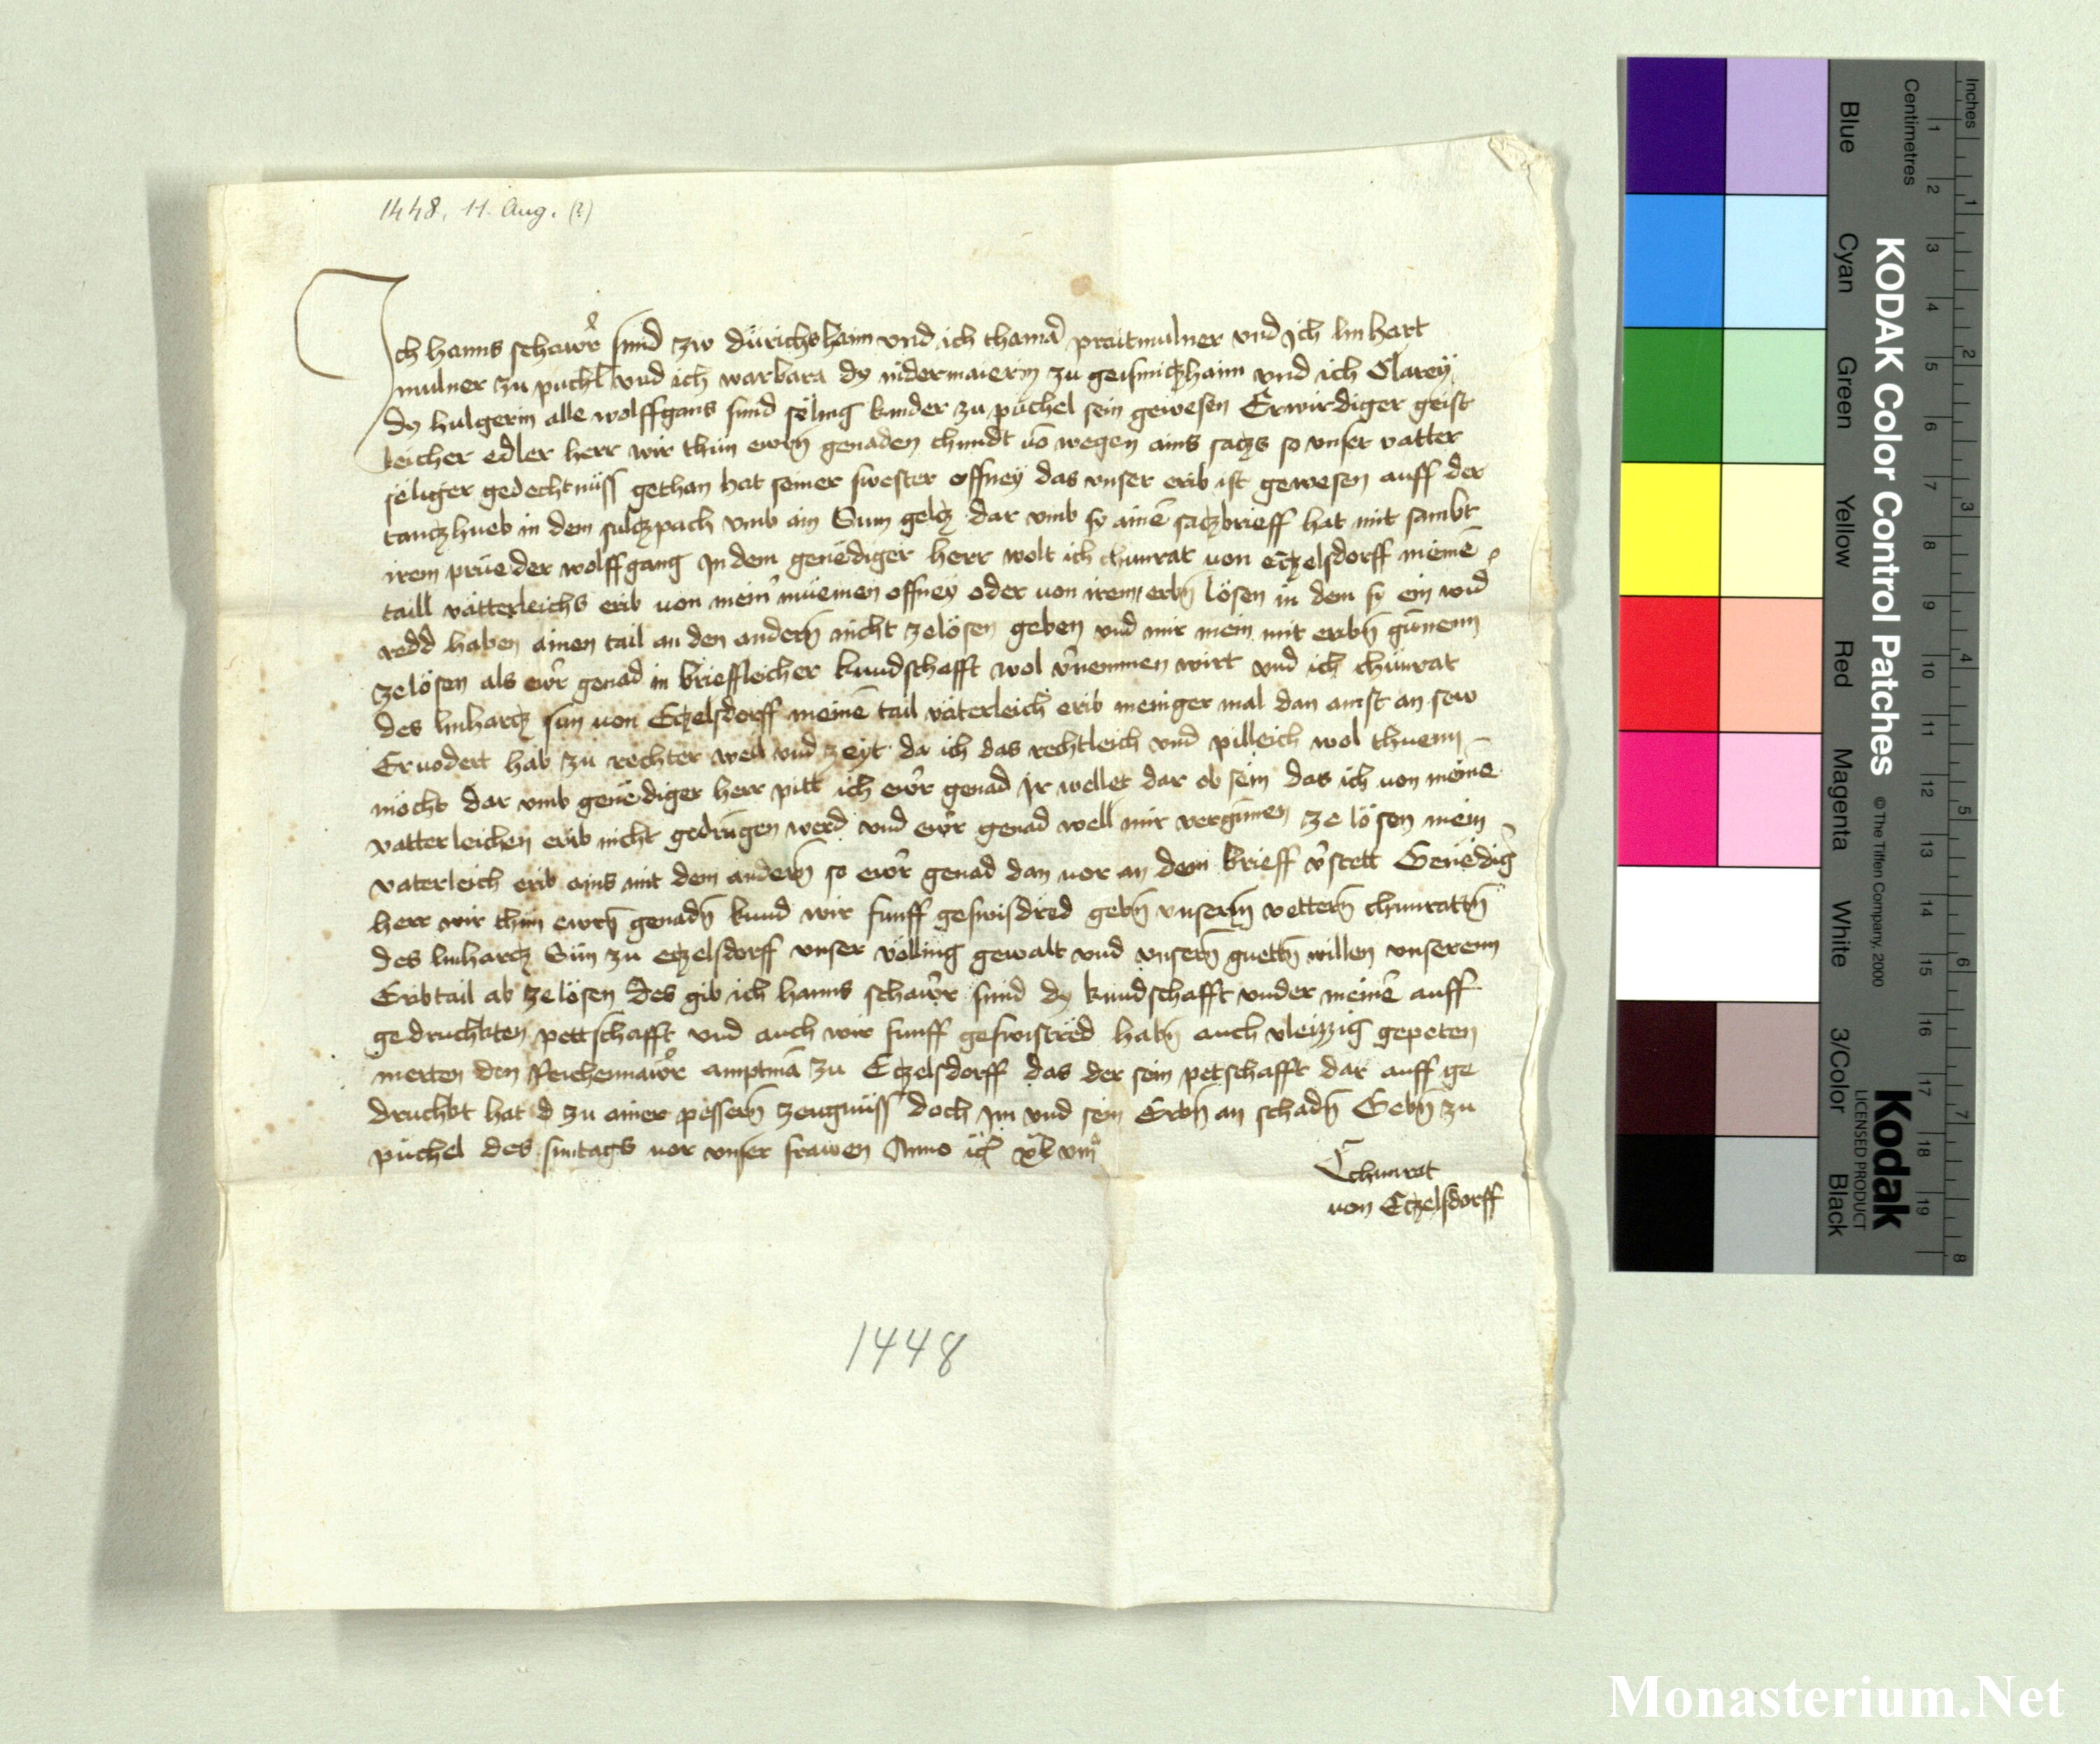 1448, 11. Aug. (?)
Ich hanns schawr̊ smid zw dürichshaim vnd ich thaman praitmulner vnd Ich linhart
mulner zu puchl vnd ich warbara dy nidermaierin zu geismitzhaim vnd ich Clarey
dy hulgerin alle wolffgans smid sëling kinder zu püchel sein gewesen Erwirdiger geist
leicher edler herr wir thün ewrn̄ genaden chundt vō wegen ains satzs so vnser vatter
sëliger gedechtnüss gethan hat seiner swester offney das vnser erib ist gewesen auff der
tanczhueb in dem sulczpach vmb ain Sum gelcz dar vmb sy ainē satzbrieff hat mit sambt
irem prüeder wolffgang In dem genëdiger herr wolt ich chunrat von etzelsdorff meinē
taill vätterleichs erib von mein̄ müemen offney oder von irem erbn̄ lösen in dem sy ein wid
redd haben ainen tail an den andern̄ nicht zelösen geben vnd mir mein mit eribn̄ günenn
zelösen als ewr̄ genad in brieffleicher kundschafft wol v̄nemmen wirt vnd ich chünrat
des linhartz sun von Etzelsdorff meinē tail väterleich erib meniger mal dan ainst an sew
Eruodert hab zu rechter weil vnd zeyt da ich das rechtleich vnd pilleich wol thuenn
möcht dar vmb genëdiger herr pitt ich ewr̄ genad Ir wellet dar ob sein das ich von meinē
vatterleichen erib nicht gedrungen werd vnd ewr̄ genad well mir vergünnen ze lösen mein
vaterleich erib ains mit dem andern̄ so ewr̄ genad dan vor an dem brieff v̄stett Genëdiḡ
herr wir thün ewrn̄ genadn̄ kund wir funff geswisdred gebn̄ vnserm̄ vettern̄ chunratn̄
des linhartz Sün zu etzelsdorff vnser völling gewalt vnd vnsern̄ guettn̄ willen vnserenn
Eribtail ab zelösen Des gib ich hanns schawr̄ smid dy kundschafft vnder meinē auff
gedruchkten pettschafft vnd auch wir funff geswistred habn̄ auch vleizzig gepeten
merten den Reichenmawr̊ amptmā zu Etzelsdorff das der sein petschafft dar auff ge
druchkt hat zu ainer pessern̄ zeugnüss doch Im vnd sein Erbn̄ an schadn̄ Gebn̄ zu
püchel des suntags vor vnser frawen Anno iiijc xlviijo
Chunrat
von Etzelsdorff
1448
Inches
Centimetres
KODAK Color Control Patches
© The Tiffen Company, 2000
Kodak
LICENSED PRODUCT
Blue
Cyan
Green
Yellow
Red
Magenta
White
3/Color
Black
Monasterium.Net